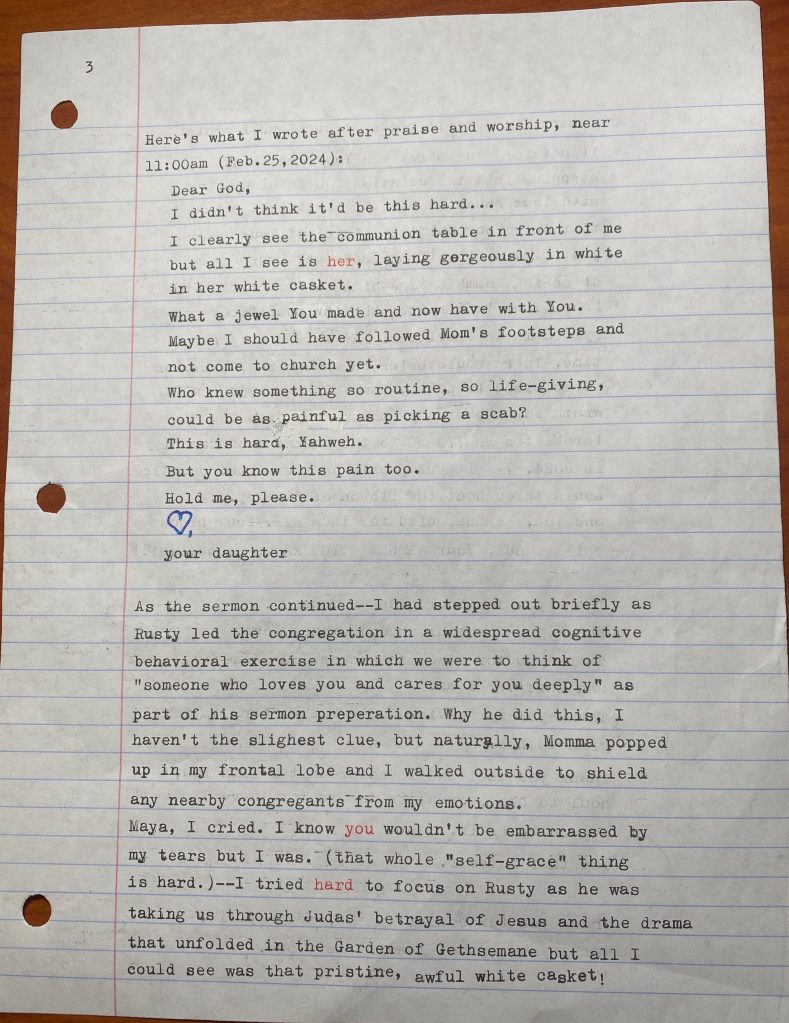 3
Here's what I wrote after praise and worship, near
11:00am (Feb.25,2024):
Dear God,
I didn't think it'd be this hard...
I clearly see the communion table in front of me
but all I see is her, laying gorgeously in white
in her white casket.
What a jewel You made and now have with You.
Maybe I should have followed Mom's footsteps and
not come to church yet.
Who knew something so routine, so life-giving,
could be as painful as picking a scab?
This is hard, Yahweh.
But you know this pain too.
Hold me, please.
♡,
your daughter
As the sermon continued--I had stepped out briefly as
Rusty led the congregation in a widespread cognitive
behavioral exercise in which we were to think of
"someone who loves you and cares for you deeply" as
part of his sermon preperation. Why he did this, I
haven't the slighest clue, but naturally, Momma popped
up in my frontal lobe and I walked outside to shield
any nearby congregants from my emotions.
Maya, I cried. I know you wouldn't be embarrassed by
my tears but I was. (that whole "self-grace" thing
is hard.)--I tried hard to focus on Rusty as he was
taking us through Judas' betrayal of Jesus and the drama
that unfolded in the Garden of Gethsemane but all I
could see was that pristine, awful white casket!